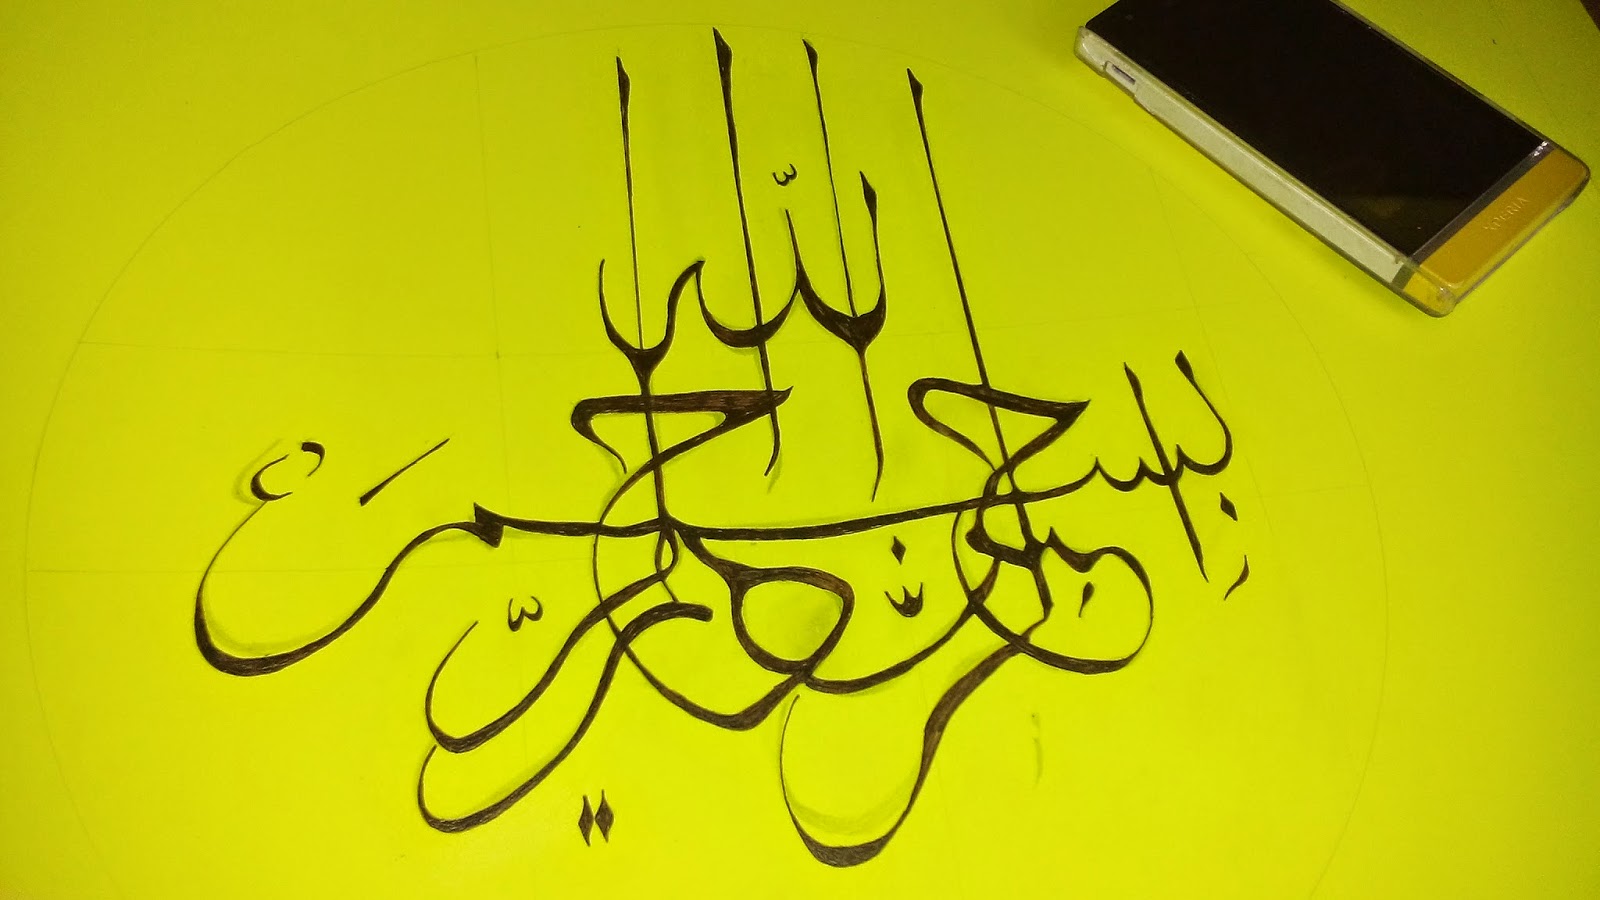 بسم الله الرحمن الرحيم
XPERIA